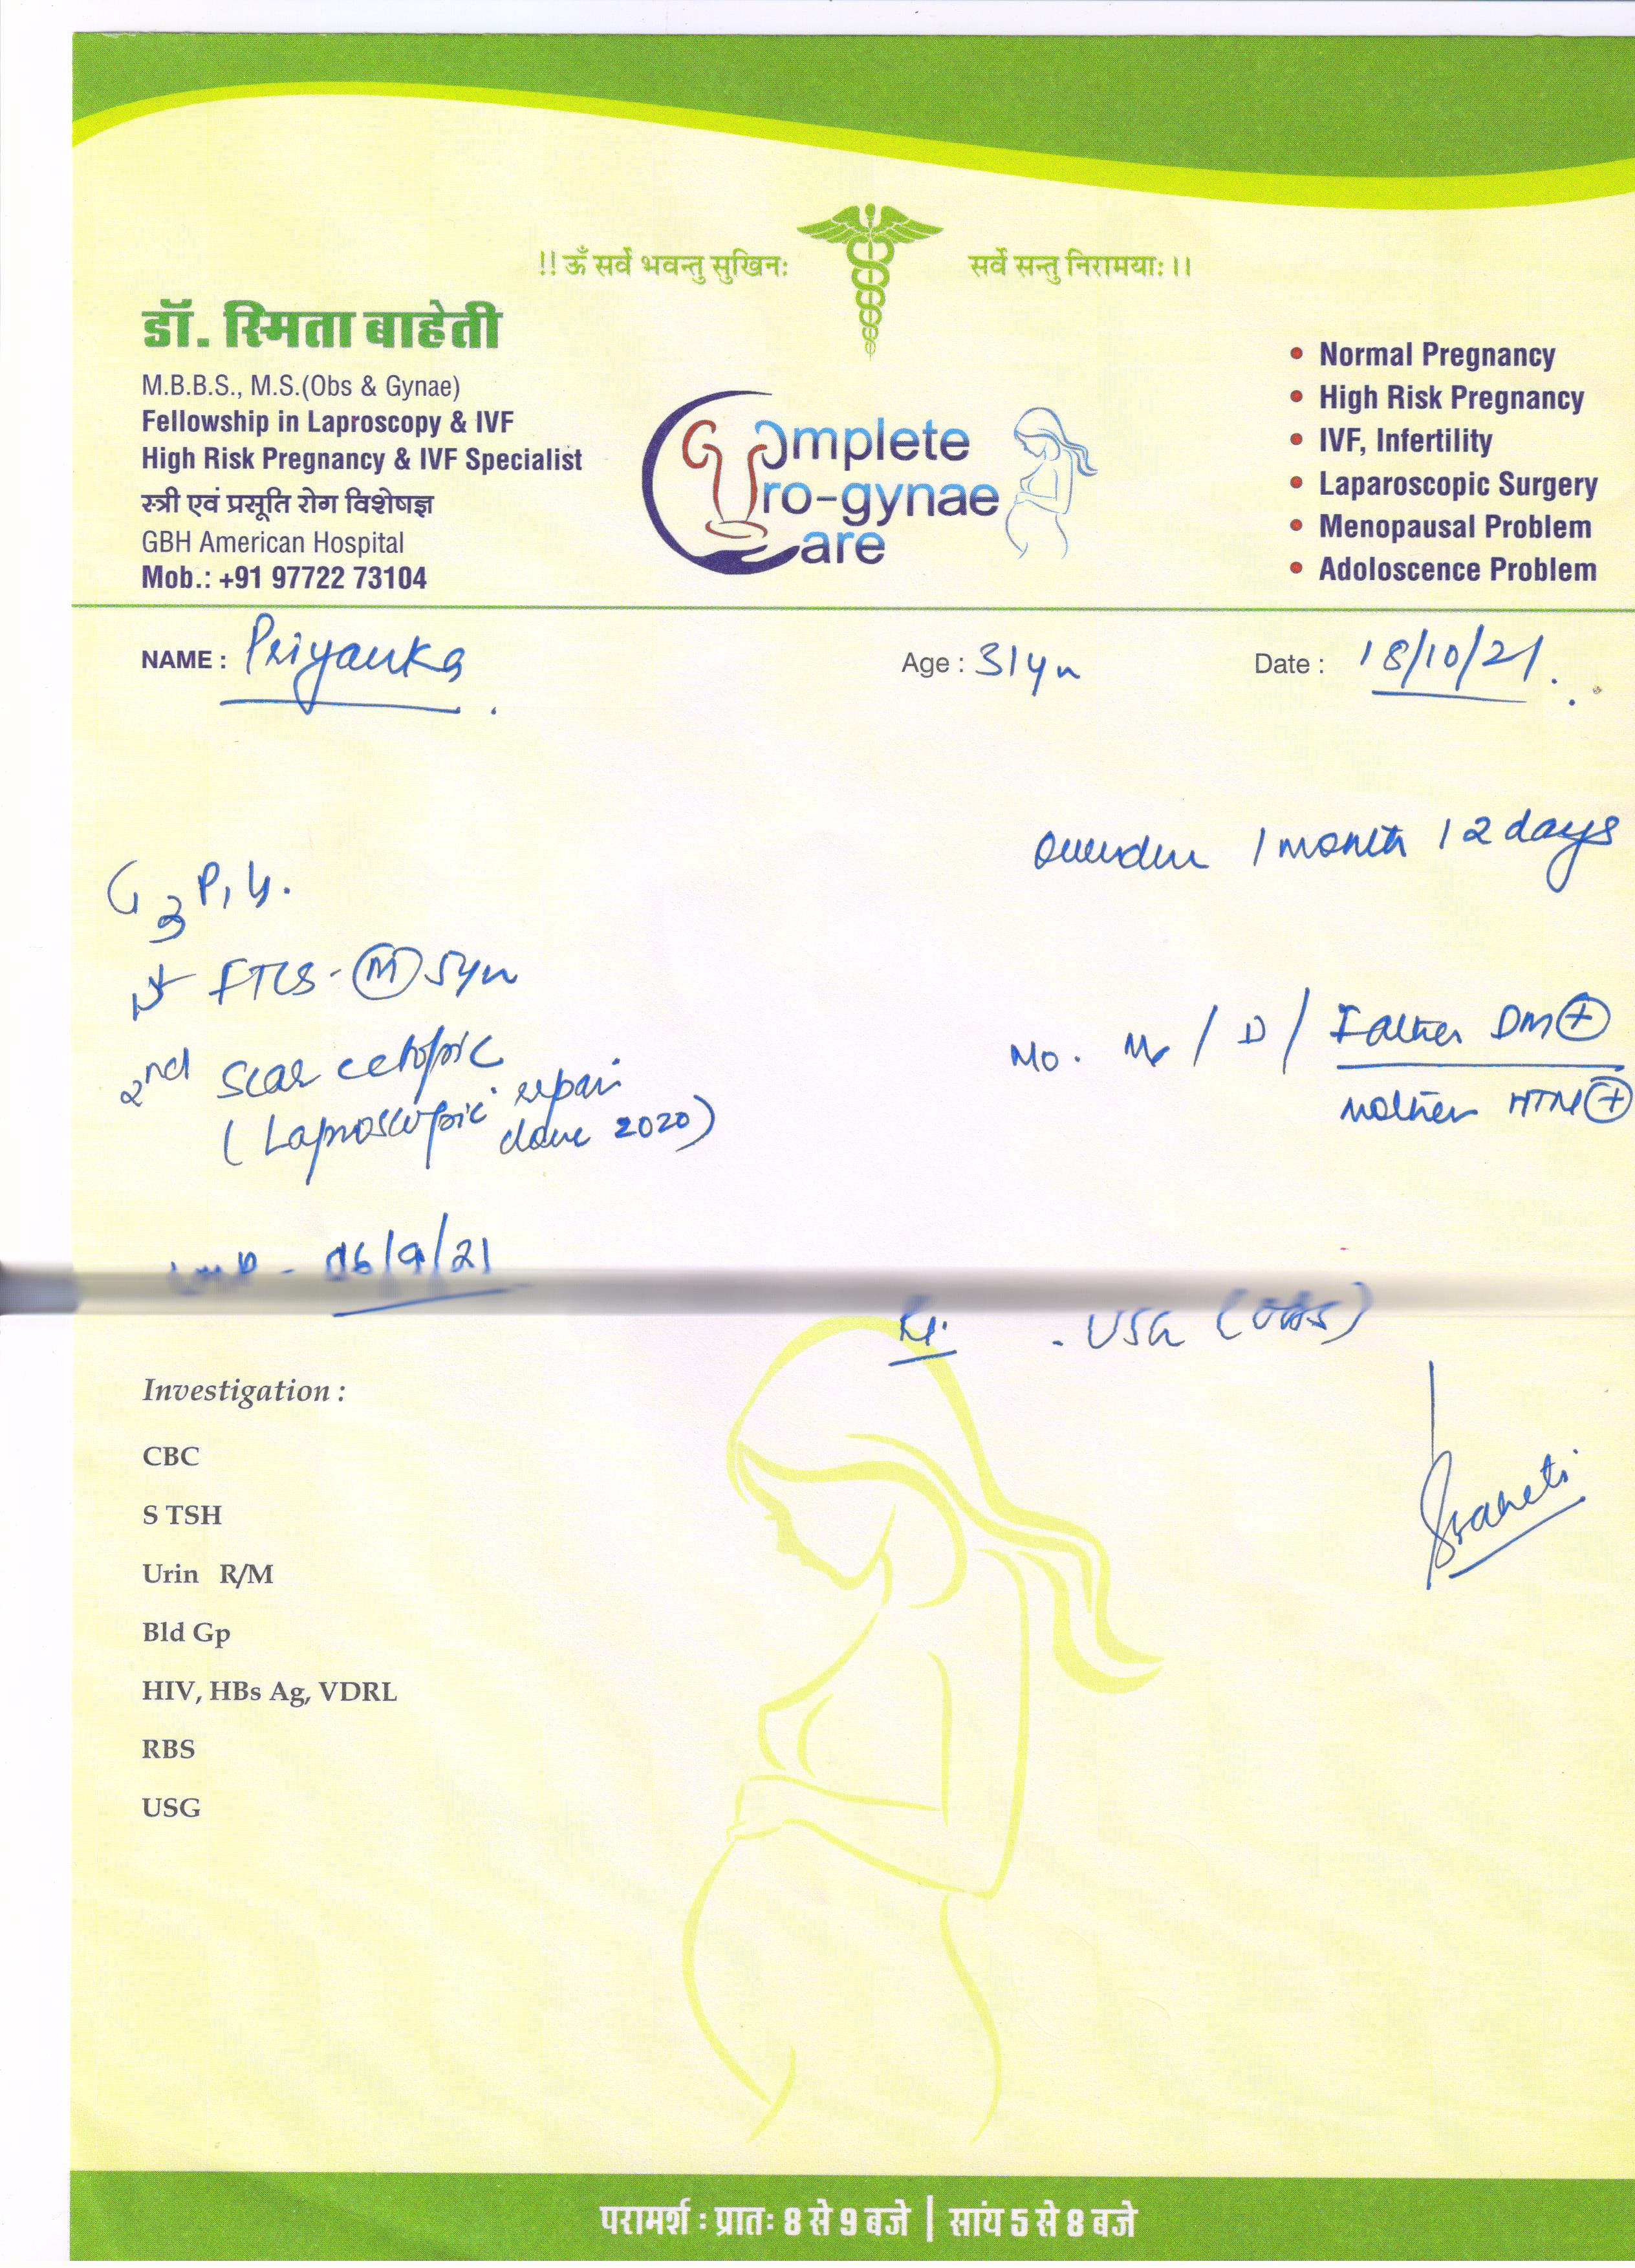 !! ॐ सर्वे भवन्तु सुखिनः सर्वे सन्तु निरामयाः ।।
डॉ. स्मिता बाहेती
M.B.B.S., M.S.(Obs & Gynae)
Fellowship in Laproscopy & IVF
High Risk Pregnancy & IVF Specialist
स्त्री एवं प्रसूति रोग विशेषज्ञ
GBH American Hospital
Mob.: +91 97722 73104
Complete
Uro-gynae
Care
• Normal Pregnancy
• High Risk Pregnancy
• IVF, Infertility
• Laparoscopic Surgery
• Menopausal Problem
• Adoloscence Problem
NAME : Priyanka Age : 31yr Date : 18/10/21.
Overdue 1 month 12 days
G3 P1 L1.
1st FTCS - (M) 5yr
2nd Scar ectopic
(Laproscopic repair
done 2020)
Mo. / D / Father DM (+)
Mother HTN (+)
LMP - 06/9/21
- USG (OBS)
Sbaheti
Investigation :
CBC
S TSH
Urin R/M
Bld Gp
HIV, HBs Ag, VDRL
RBS
USG
परामर्श : प्रातः 8 से 9 बजे | सांय 5 से 8 बजे